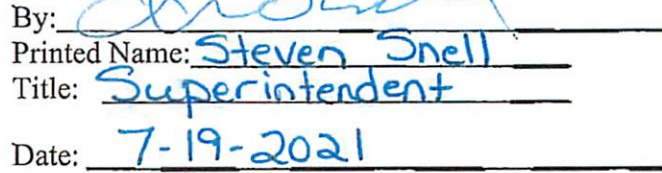 By:
Printed Name: Steven Snell
Title: Superintendent
Date: 7-19-2021